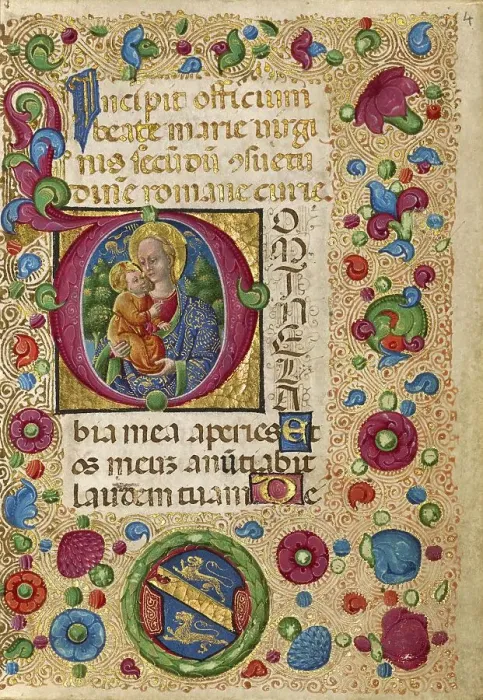 4
Incipit officium
beate marie virgi
nis secūdū ꝯsuetu
dinē romane curie
DOMINE LA
bia mea aperies Et
os meuȝ anūtiabit
laudem tuam De